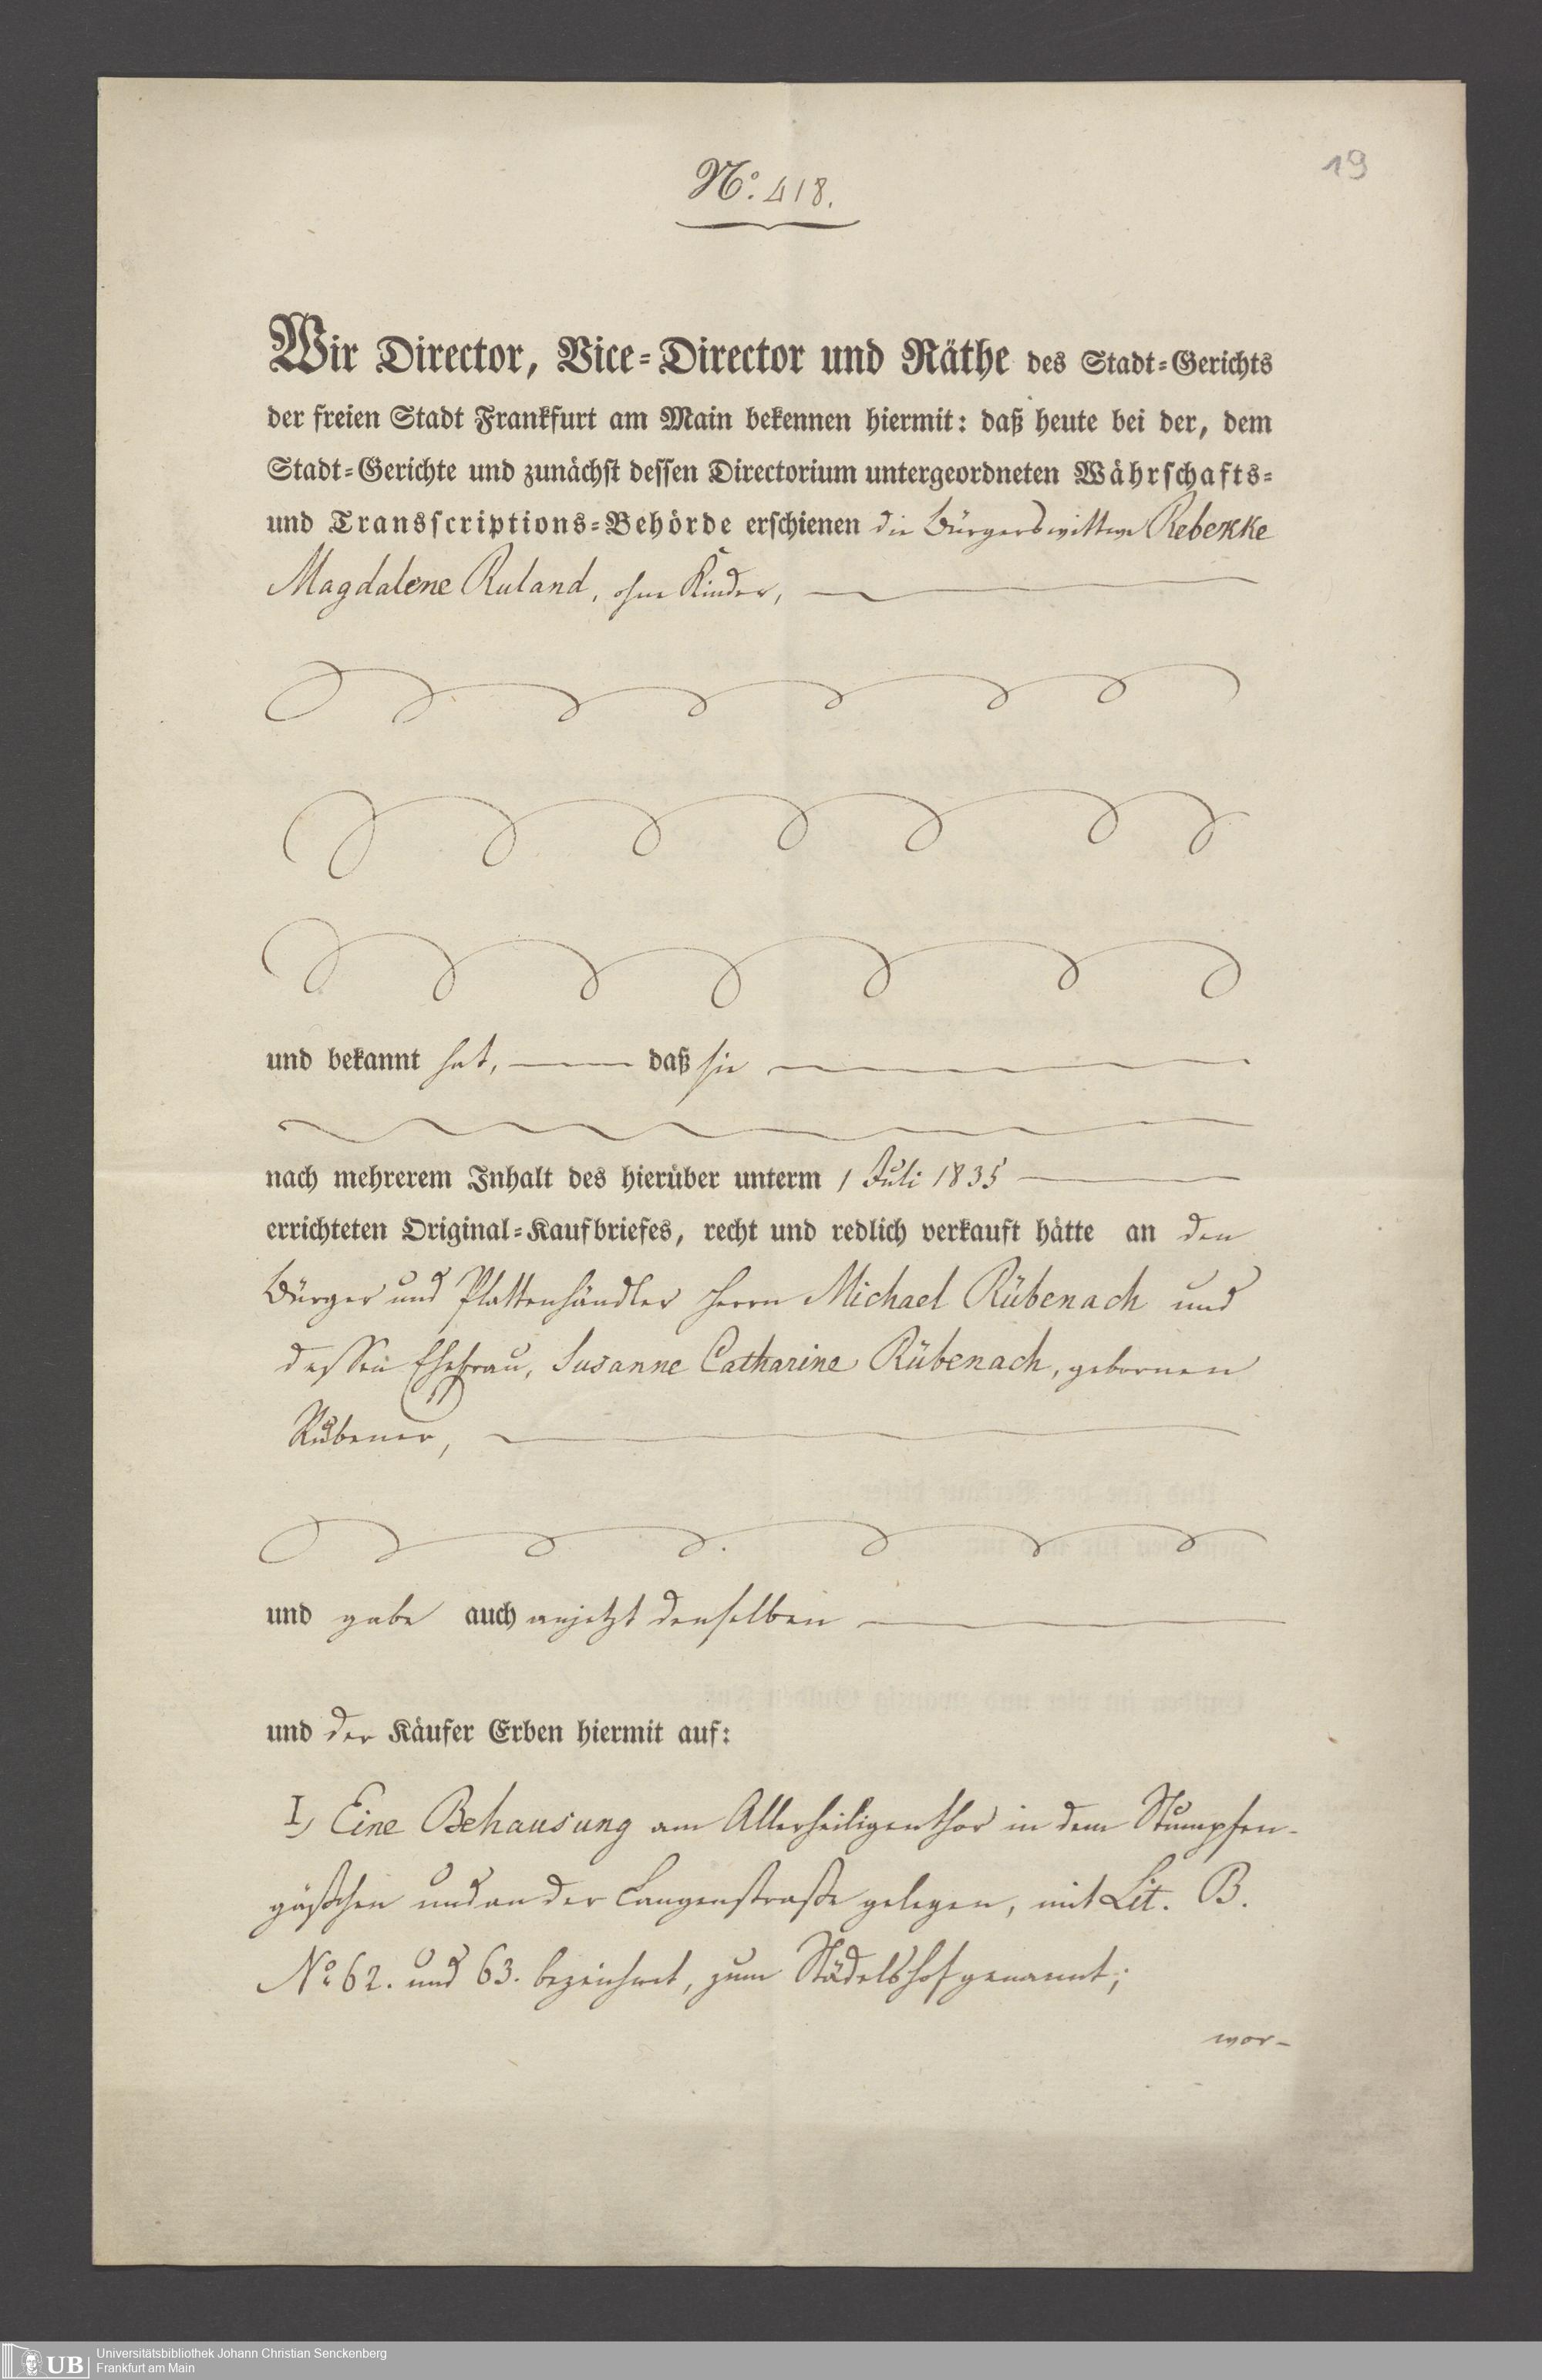 19
No. 418.
Wir Director, Vice-Director und Räthe des Stadt-Gerichts
der freien Stadt Frankfurt am Main bekennen hiermit: daß heute bei der, dem
Stadt-Gerichte und zunächst dessen Directorium untergeordneten Währschafts-
und Transscriptions-Behörde erschienen die Bürgerswittwe Rebekke
Magdalene Ruland, ohne Kinder,
und bekannt hat, daß sie
nach mehrerem Inhalt des hierüber unterm 1 Juli 1835
errichteten Original-Kaufbriefes, recht und redlich verkauft hätte an den
Bürger und Plattenhändler Herrn Michael Rübenach und
dessen Ehefrau, Susanne Catharine Rübenach, gebornen
und gabe auch anjetzt denselben
und der Käufer Erben hiermit auf:
I, Eine Behausung am Allerheiligenthor in dem Stumpfen-
gäßchen und an der Langenstraße gelegen, mit Lit. B.
No 62. und 63. bezeichnet, zum Städelshof genannt;
wor-
UB Universitätsbibliothek Johann Christian Senckenberg
Frankfurt am Main